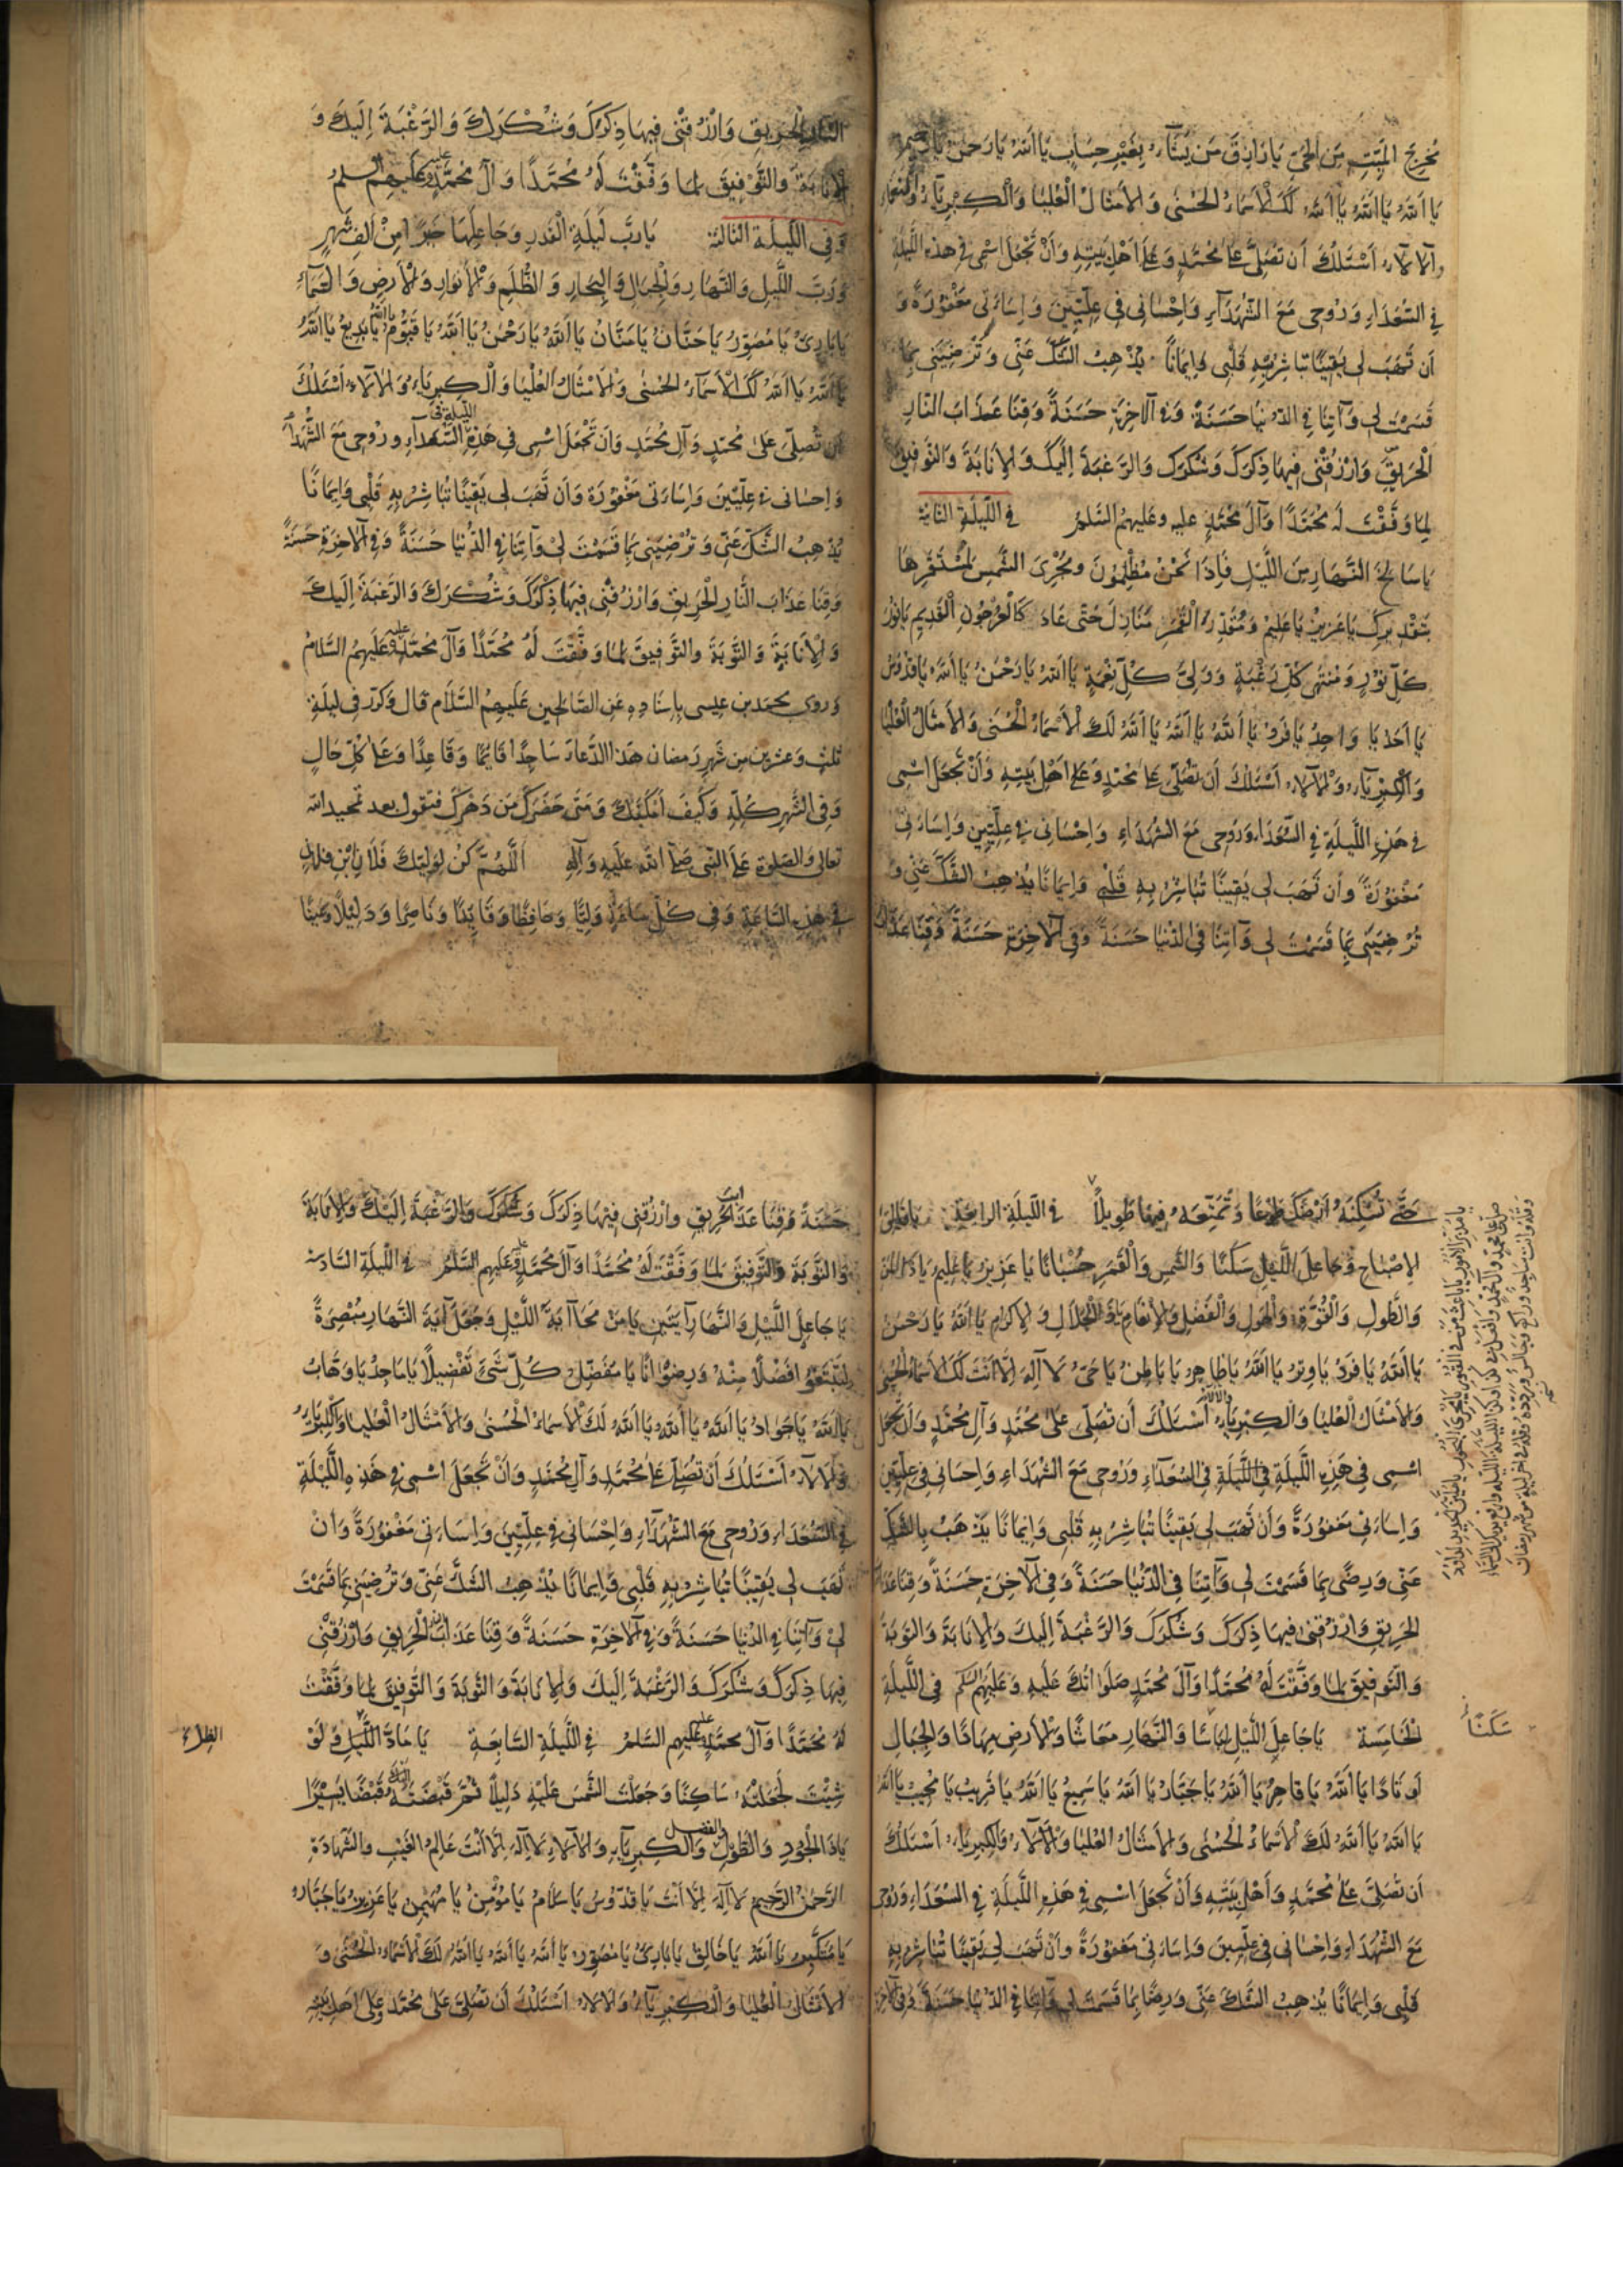 مُخرِجَ المَيِّتِ مِنَ الحَيِّ يَا رَازِقَ مَن يَشَآءُ بِغَيرِ حِسَابٍ يَا اَللهُ يَا رَحمٰنُ يَا رَحِيمُ
يَا اَللهُ يَا اَللهُ يَا اَللهُ لَكَ الْاَسمَاءُ الحُسنٰى وَالاَمثَالُ الْعُليَا وَالْكِبْرِيَآءُ
وَالآلآءُ اَسْئَلُكَ اَن تُصَلِّىَ عَلٰى مُحَمَّدٍ وَعَلٰى اَهلِ بَيتِهِ وَاَنْ تَجْعَلَ اسْمِى فِى هٰذِهِ اللَّيلَةِ
فِى السُّعَدَاءِ وَرُوحِى مَعَ الشُّهَدَآءِ وَاِحْسَانِى فِى عِلِّيِّينَ وَاِسَاءَتِى مَغْفُورَةً وَ
اَن تَهَبَ لِى يَقِينًا تُبَاشِرُ بِهِ قَلْبِى وَاِيمَانًا يُذْهِبُ الشَّكَّ عَنِّى وَتُرْضِيَنِى بِمَا
قَسَمْتَ لِى وَآتِنَا فِى الدُّنْيَا حَسَنَةً وَفِى الآخِرَةِ حَسَنَةً وَقِنَا عَذَابَ النَّارِ
الْحَرِيقِ وَارْزُقْنِى فِيهَا ذِكرَكَ وَشُكْرَكَ وَالرَّغبَةَ اِلَيكَ وَالاِنَابَةَ وَالتَّوفِيقَ
لِمَا وَفَّقْتَ لَهُ مُحَمَّدًا وَآلَ مُحَمَّدٍ عليه وعَلَيهِمُ السَّلٰمُ فى اللَّيلَةِ الثانية
يَا سَالِخَ النَّهَارِ مِنَ اللَّيْلِ فَاِذَا نَحْنُ مُظْلِمُونَ ومُجْرِىَ الشَّمسِ لِمُسْتَقَرِّهَا
بِتَقْدِيرِكَ يَا عَزِيزُ يَا عَلِيمُ وَمُقَدِّرَ الْقَمَرِ مَنَازِلَ حَتّٰى عَادَ كَالْعُرجُونِ الْقَدِيمِ يَا نُورَ
كُلِّ نُورٍ وَمُنْتَهٰى كُلِّ رَغْبَةٍ وَوَلِىَّ كُلِّ نِعْمَةٍ يَا اَللهُ يَا رَحْمٰنُ يَا اَللهُ يَا قُدُّوسُ
يَا اَحَدُ يَا وَاحِدُ يَا فَردُ يَا اَللهُ يَا اَللهُ يَا اَللهُ لَكَ الْاَسمَاءُ الْحُسْنٰى وَالاَمثَالُ الْعُليَا
وَالْكِبْرِيَآءُ وَالآلآءُ اَسْئَلُكَ اَن تُصَلِّىَ عَلٰى مُحَمَّدٍ وَعَلٰى اَهْلِ بَيْتِهِ وَاَنْ تَجْعَلَ اسْمِى
فِى هٰذِهِ اللَّيلَةِ فِى السُّعَدَاءِ وَرُوحِى مَعَ الشُّهَدَاءِ وَاِحْسَانِى فِى عِلِّيِّينَ وَاِسَاءَتِى
مَغْفُورَةً وَاَن تَهَبَ لِى يَقِينًا تُبَاشِرُ بِهِ قَلْبِى وَاِيمَانًا يُذْهِبُ الشَّكَّ عَنِّى وَ
تُرْضِيَنِى بِمَا قَسَمْتَ لِى وَآتِنَا فِى الدُّنْيَا حَسَنَةً وَفِى الآخِرَةِ حَسَنَةً وَقِنَا عَذَابَ
النَّارِ الحَرِيقِ وَارْزُقْنِى فِيهَا ذِكرَكَ وَشُكْرَكَ وَالرَّغْبَةَ اِلَيكَ وَ
الاِنَابَةَ وَالتَّوْفِيقَ لِمَا وَفَّقْتَ لَهُ مُحَمَّدًا وَآلَ مُحَمَّدٍ عليه وَعَلَيهِمُ السلمُ
وَفِى اللَّيلَةِ الثالثة يَا رَبَّ لَيلَةِ الْقَدرِ وَجَاعِلَهَا خَيرًا مِنْ اَلفِ شَهرٍ
وَرَبَّ اللَّيلِ وَالنَّهَارِ وَالْجِبَالِ وَالبِحَارِ وَالظُّلَمِ وَالْاَنوَارِ وَالْاَرضِ وَالسَّمَآءِ
يَا بَارِئُ يَا مُصَوِّرُ يَا حَنَّانُ يَا مَنَّانُ يَا اَللهُ يَا رَحْمٰنُ يَا اَللهُ يَا قَيُّومُ يا الله يَا بَدِيعُ يَا اَللهُ
يَا اَللهُ يَا اَللهُ لَكَ الْاَسمَآءُ الحُسْنٰى وَالْاَمْثَالُ العُلْيَا وَالْكِبرِيَآءُ وَالآلآءُ اَسْئَلُكَ
اَن تُصَلِّىَ عَلٰى مُحَمَّدٍ وَآلِ مُحَمَّدٍ وَاَن تَجْعَلَ اسْمِى فِى هٰذِهِ الليلة فى السُّعَدَآءِ وَرُوحِى مَعَ الشُّهَدَآءِ
وَاِحسَانى فِى عِلِّيِّينَ وَاِسَاءَتى مَغْفُورَةً وَاَن تَهَبَ لِى يَقِينًا تُبَاشِرُ بِهِ قَلْبِى وَاِيمَانًا
يُذْهِبُ الشَّكَّ عَنِّى وَتُرْضِيَنِى بِمَا قَسَمْتَ لِى وَآتِنَا فِى الدُّنْيَا حَسَنَةً وَفِى الآخِرَةِ حَسَنَةً
وَقِنَا عَذَابَ النَّارِ الْحَرِيقِ وَارْزُقْنِى فِيهَا ذِكْرَكَ وَشُكْرَكَ وَالرَّغبَةَ اِلَيكَ
وَالْاِنَابَةَ وَالتَّوْبَةَ وَالتَّوفِيقَ لِمَا وَفَّقْتَ لَهُ مُحَمَّدًا وَآلَ مُحَمَّدٍ عليه وَعَلَيهِمُ السَّلَامُ
وَروى محمد بن عيسى بِاِسنَادِهِ عَنِ الصَّالِحِين عَلَيهِمُ السَّلَام قَال وَكرّر فِى لَيلَةِ
ثلٰثٍ وَعشرين مِن شَهرِ رَمضان هٰذَا الدُّعَاءَ سَاجِدًا قَائِمًا وَقَاعِدًا وَعَلٰى كُلِّ حَالٍ
وَفِى الشَّهرِ كُلِّهِ وَكَيفَ اَمكَنَكَ وَمَتٰى حَضَرَكَ مِن دَهْرِكَ فتَقول بعد تمجيد الله
تعالى وَالصّلوة عَلَى النَّبِى صَلَّى اللهُ عَلَيهِ وَآلِهِ اَللّٰهُمَّ كُنْ لِوَلِيِّكَ فُلَانِ بْنِ فُلانٍ
فِى هٰذِهِ السَّاعَةِ وَفِى كُلِّ سَاعَةٍ وَلِيًّا وَحَافِظًا وَقَائِدًا وَنَاصِرًا وَدَلِيلًا وَعَيْنًا
حَتّٰى تُسْكِنَهُ اَرْضَكَ طَوْعًا وَتُمَتِّعَهُ فِيهَا طَوِيلًا فى اللَّيلَةِ الرابِعَةِ يا فَالِقَ
الاِصْبَاحِ وَجَاعِلَ اللَّيْلِ سَكَنًا وَالشَّمْسِ وَالْقَمَرِ حُسْبَانًا يَا عَزِيزُ يَا عَلِيمُ يَا ذَا المَنِّ
وَالطَّولِ وَالْقُوَّةِ وَالْحَولِ وَالْفَضْلِ وَالاِنعَامِ يَا ذَا الْجَلَالِ وَالاِكرَامِ يَا اَللهُ يَا رَحْمٰنُ
يَا اَللهُ يَا فَردُ يَا وِترُ يَا اَللهُ يَا ظَاهِرُ يَا بَاطِنُ يَا حَىُّ لَا اِلٰهَ اِلَّا اَنْتَ لَكَ الاَسمَاءُ الحُسْنٰى
وَالاَمثَالُ الْعُليَا وَالْكِبْرِيَآءُ والآلاء اَسْئَلُكَ اَن تُصَلِّىَ عَلٰى مُحَمَّدٍ وَآلِ مُحَمَّدٍ وَاَن تَجْعَلَ
اسْمِى فِى هٰذِهِ اللَّيلَةِ فِى السُّعَدَآءِ وَرُوحِى مَعَ الشُّهَدَاءِ وَاِحسَانِى فِى عِلِّيِّينَ
وَاِسَاءَتِى مَغْفُورَةً وَاَنْ تَهَبَ لِى يَقِينًا تُبَاشِرُ بِهِ قَلبِى وَاِيمَانًا يَذْهَبُ بِالشَّكِّ
عَنِّى وَرِضًى بِمَا قَسَمْتَ لِى وَآتِنَا فِى الدُّنْيَا حَسَنَةً وَفِى الآخِرَةِ حَسَنَةً وَقِنَا عَذَابَ
الحَرِيقِ وَارْزُقنِى فِيهَا ذِكرَكَ وَشُكرَكَ وَالرَّغْبَةَ اِلَيكَ وَالاِنَابَةَ وَالتَّوبَةَ
وَالتَّوفِيقَ لِمَا وَفَّقْتَ لَهُ مُحَمَّدًا وَآلَ مُحَمَّدٍ صَلَوَاتُكَ عَلَيهِ وَعَلَيهِمُ السلم فِى اللَّيلَةِ
الْخَامِسَةِ يَا جَاعِلَ اللَّيْلِ لِبَاسًا وَالنَّهَارِ مَعَاشًا وَالْاَرضِ مِهَادًا وَالْجِبَالِ
سَكَنًا
اَوتَادًا يَا اَللهُ يَا قَاهِرُ يَا اَللهُ يَا جَبَّارُ يَا اَللهُ يَا سَمِيعُ يَا اَللهُ يَا قَرِيبُ يَا مُجِيبُ يَا اَللهُ
يَا اَللهُ يَا اَللهُ لَكَ الْاَسْمَاءُ الْحُسْنٰى وَالاَمثَالُ العُليَا وَالآلَآءُ وَالْكِبرِيَآءُ اَسْئَلُكَ
اَن تُصَلِّىَ عَلٰى مُحَمَّدٍ وَاَهْلِ بَيْتِهِ وَاَنْ تَجعَلَ اسْمِى فِى هٰذِهِ اللَّيلَةِ فِى السُّعَدَآءِ وَرُوحِى
مَعَ الشُّهَدَاءِ وَاِحْسَانِى فِى عِلِّيِّينَ وَاِسَاءَتِى مَغْفُورَةً وَاَنْ تَهَبَ لِى يَقِينًا تُبَاشِرُ بِهِ
قَلبِى وَاِيمَانًا يُذْهِبُ الشَّكَّ عَنِّى وَرِضًا بِمَا قَسَمْتَ لِى وَآتِنَا فِى الدُّنيَا حَسَنَةً وَفِى الآخِرَةِ
حَسَنَةً وَقِنَا عَذَابَ الْحَرِيقِ وَارْزُقنِى فِيهَا ذِكرَكَ وَشُكْرَكَ وَالرَّغْبَةَ اِلَيْكَ وَالاِنَابَةَ
وَالتَّوبَةَ وَالتَّوْفِيقَ لِمَا وَفَّقْتَ لَهُ مُحَمَّدًا وَآلَ مُحَمَّدٍ عَلَيهِم السَّلٰمُ فى اللَّيلَةِ السَّادِسَة
يَا جَاعِلَ اللَّيْلِ وَالنَّهَارِ آيَتَينِ يَا مَنْ مَحَا آيَةَ اللَّيْلِ وَجَعَلَ آيَةَ النَّهَارِ مُبْصِرَةً
لِتَبْتَغُوا فَضْلًا مِنْهُ وَرِضْوَانًا يَا مُفَصِّلَ كُلِّ شَىءٍ تَفْصِيلًا يَا مَاجِدُ يَا وَهَّابُ
يَا اَللهُ يَا جَوَادُ يَا اَللهُ يَا اَللهُ يَا اَللهُ لَكَ الْاَسمَاءُ الْحُسْنٰى وَالاَمْثَالُ الْعُليَا وَالْكِبْرِيَآءُ
وَالآلآءُ اَسْئَلُكَ اَنْ تُصَلِّىَ عَلٰى مُحَمَّدٍ وَآلِ مُحَمَّدٍ وَاَنْ تَجْعَلَ اسْمِى فِى هٰذِهِ اللَّيْلَةِ
فِى السُّعَدَاءِ وَرُوحِى مَعَ الشُّهَدَآءِ وَاِحْسَانِى فِى عِلِّيِّينَ وَاِسَاءَتِى مَغْفُورَةً وَاَنْ
تَهَبَ لِى يَقِينًا تُبَاشِرُ بِهِ قَلْبِى وَاِيمَانًا يُذْهِبُ الشَّكَّ عَنِّى وَتُرْضِيَنِى بِمَا قَسَمْتَ
لِى وَآتِنَا فِى الدُّنْيَا حَسَنَةً وَفِى الآخِرَةِ حَسَنَةً وَقِنَا عَذَابَ الْحَرِيقِ وَارْزُقْنِى
فِيهَا ذِكرَكَ وَشُكرَكَ وَالرَّغْبَةَ اِلَيكَ وَالاِنَابَةَ وَالتَّوبَةَ وَالتَّوفِيقَ لِمَا وَفَّقْتَ
لَهُ مُحَمَّدًا وَآلَ مُحَمَّدٍ عليه وعَلَيهِم السَّلٰمُ فى اللَّيلَةِ السَّابِعَةِ يَا مَادَّ الظِّلِّ وَلَوْ
الظِلّ
شِئْتَ لَجَعَلْتَهُ سَاكِنًا وَجَعَلْتَ الشَّمْسَ عَلَيْهِ دَلِيلًا ثُمَّ قَبَضْتَهُ اليك قَبْضًا يَسِيْرًا
يَا ذَا الْجُودِ وَالطَّوْلِ والفضل وَالْكِبرِيَآءِ وَالآلآءِ لَا اِلٰهَ اِلَّا اَنْتَ عَالِمُ الغَيْبِ وَالشَّهَادَةِ
الرَّحْمٰنُ الرَّحِيمُ لَا اِلٰهَ اِلَّا اَنْتَ يَا قُدُّوسُ يَا سَلَامُ يَا مُؤْمِنُ يَا مُهَيْمِنُ يَا عَزِيزُ يَا جَبَّارُ
يَا مُتَكَبِّرُ يَا اَللهُ يَا خَالِقُ يَا بَارِئُ يَا مُصَوِّرُ يَا اَللهُ يَا اَللهُ يَا اَللهُ لَكَ الْاَسمَاءُ الْحُسْنٰى وَ
الاَمْثَالُ الْعُليَا وَالْكِبْرِيَآءُ وَالآلآءُ اَسْئَلُكَ اَنْ تُصَلِّىَ عَلٰى مُحَمَّدٍ وَعَلٰى اَهلِ بَيْتِهِ